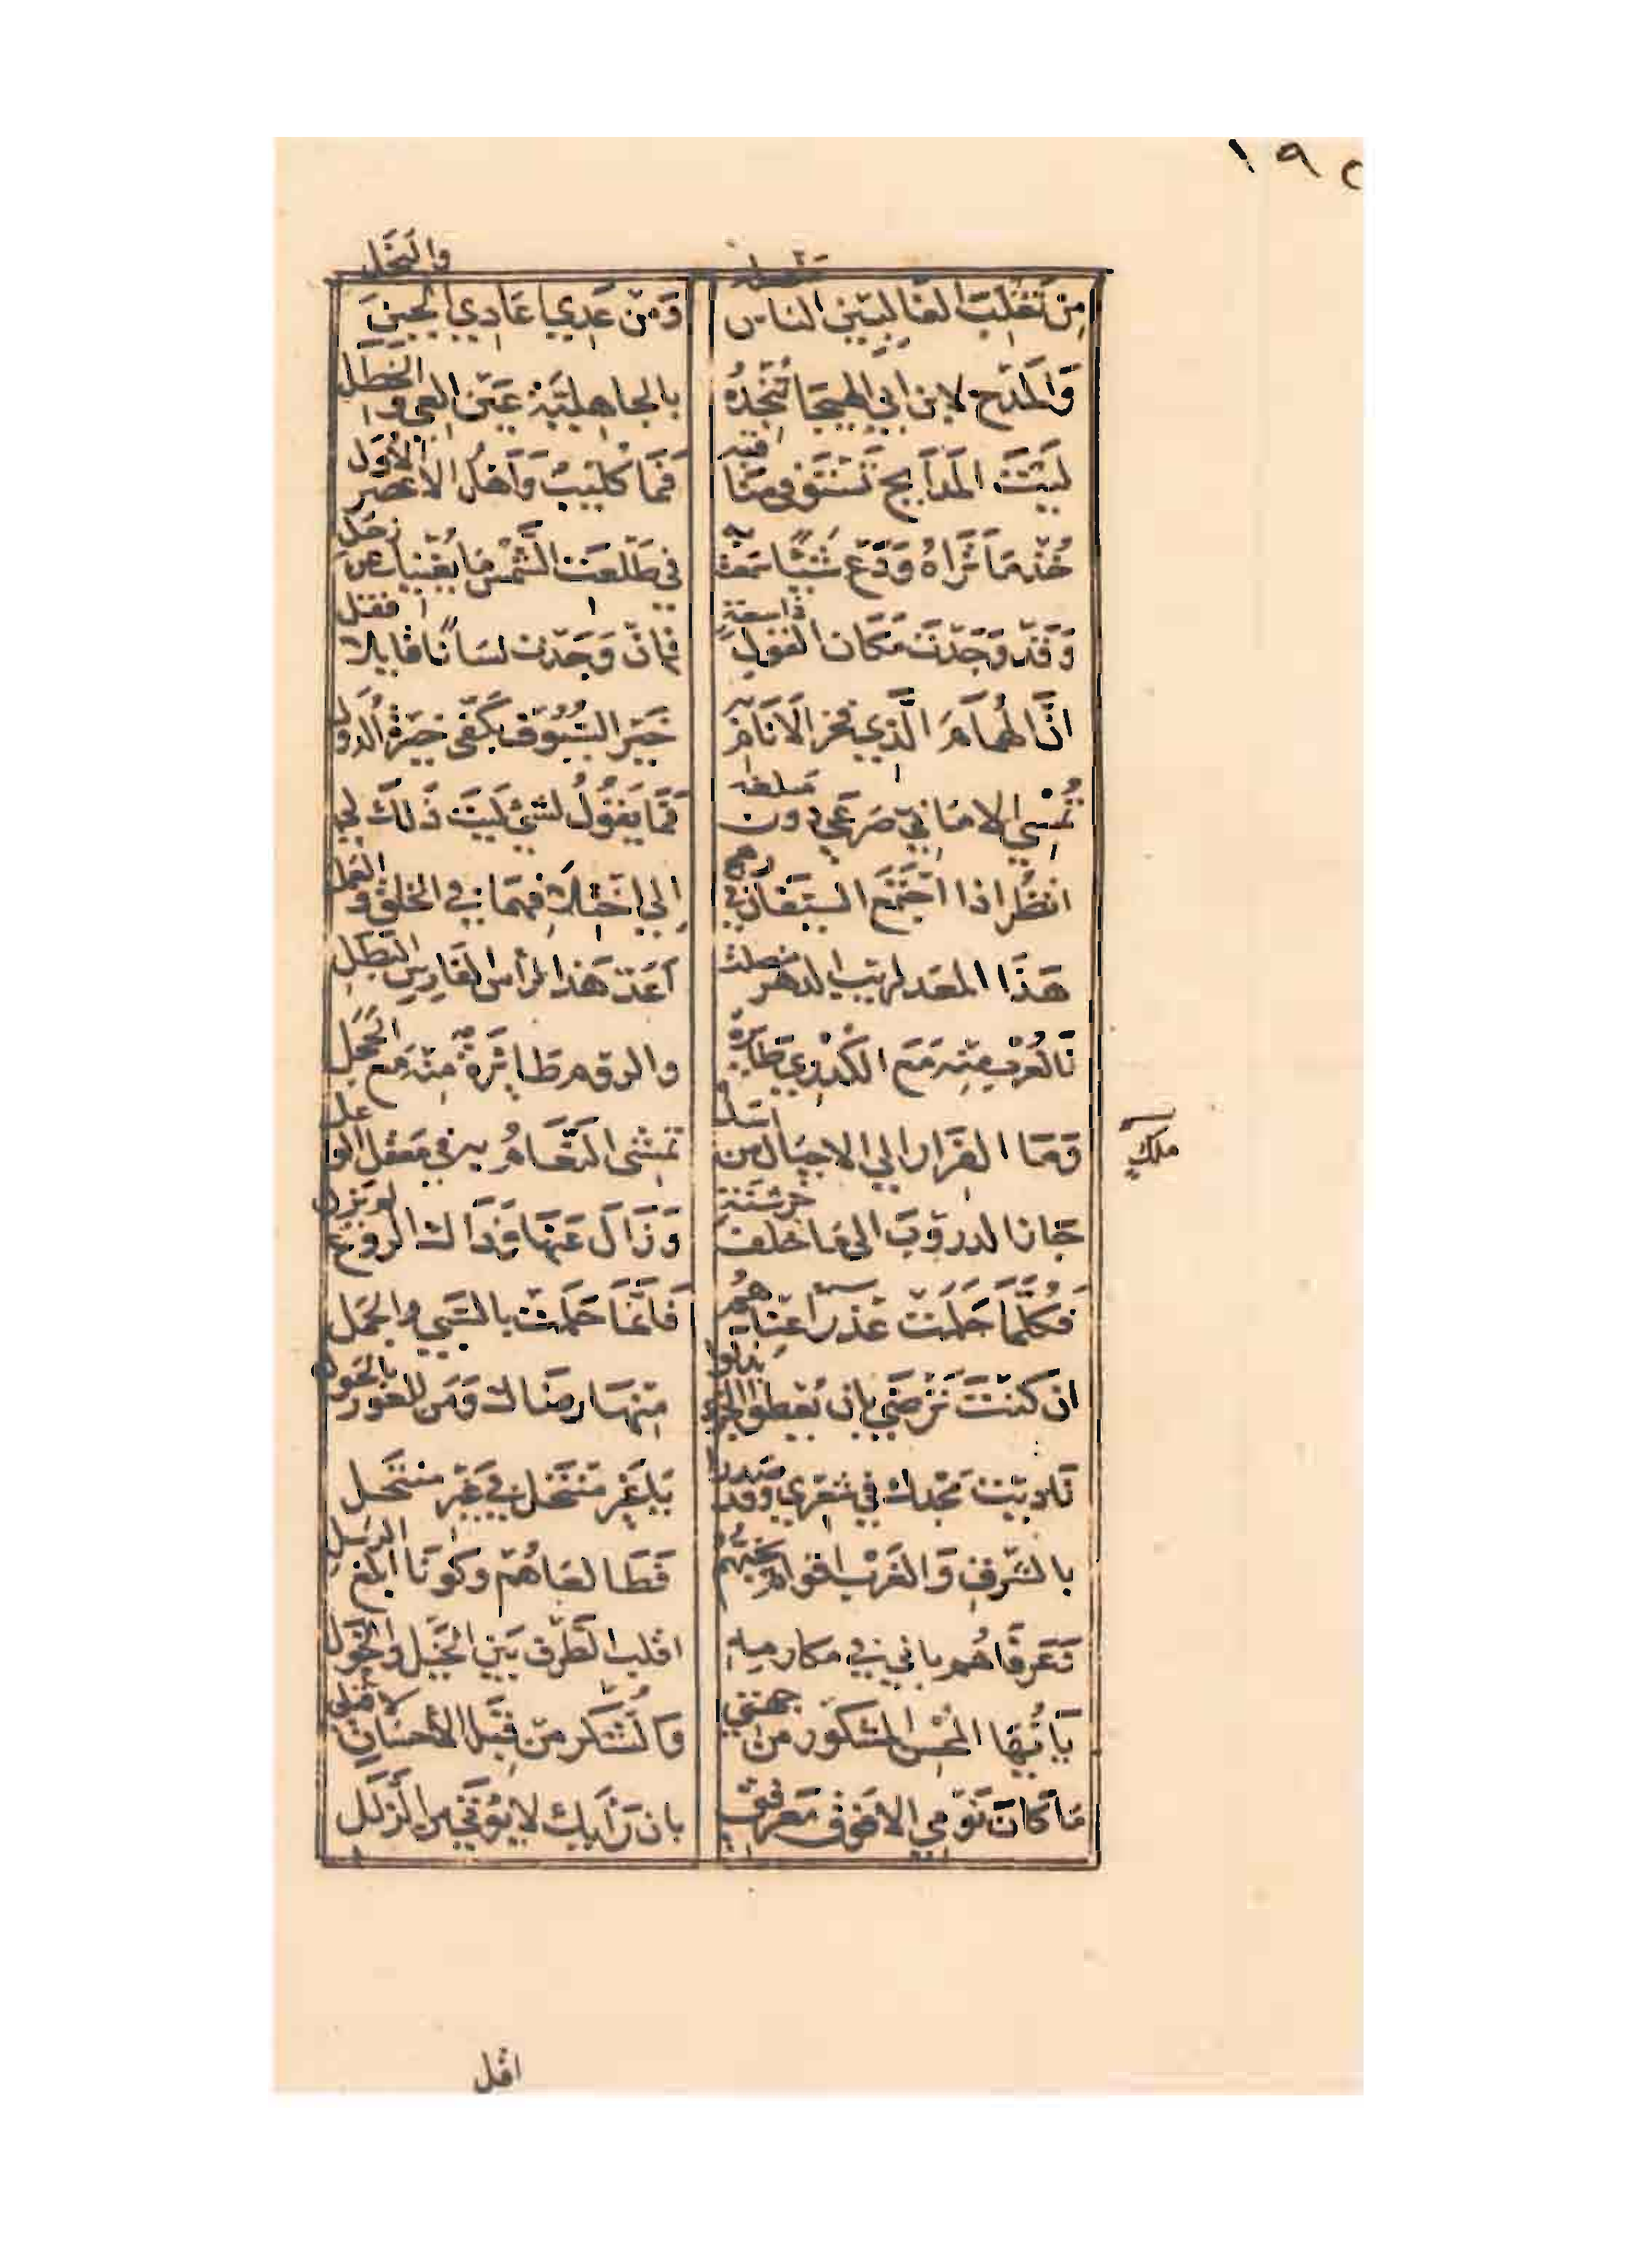 ١٩٢
مِنْ تَغْلِبَ الغالبين الناس منصبه وَمِنْ عَدِي اعَادِي الجبن والبخل
وَالمَدْح لابن ابي الهيجا تُنْجِدُه بالجاهلِيَّة عَيْن العي والخطل
لَيْتَ المَدَايح تَسْتَوفي مَنَاقبه فَمَا كُلَيْبُ وَاَهْلُ الاعْصر الأوَل
خُذْ مَا تَرَاهُ وَدَعْ شَيْئًا سَمعْت به في طَلْعَت الشَّمْس مَا يُغْنيك عن زحل
وَقَدْ وَجَدْتَ مَكَان القول ذا سعة فَانْ وَجَدْت لسَانًا قايلا فقل
انَّ الهُمَامَ الَّذي فخر الاَنَام به خَيْر السُّيُوف بكَفَّي خيَرَةُ الدُّوَل
تُمْسي الامَاني صَرْعَي دون مبلغه فَمَا يَقُولُ لشيْ لَيْتَ ذَلكَ لي
انْظُر اذا اجْتَمَع السَّيْفَان في رهج اِلي اخْتلافهِمَا في الخلق والعمل
هَذَا المعد لريب الدهر منصلتا اَعَدّ هَذا لرأس الفَارس البَطَل
فَالعُرْب منْه مَعَ الكُدْري طَايرة والروم طَائرَةٌ منْه مَعَ الحَجَل
وَمَا الفَرَار الي الاجبَال من اسد تمشي النَّعَامُ به في مَعْقل الوعل
جَازَ الدروبَ الي مَا خلف خرشنة وَزَالَ عَنْهَا وَذَاك الروع لم يزل
ملك
فكُلَّمَا حَلمَتْ عَذرآ عنْدهُم فَانَّمَا حَلمَتْ بالسَّبي والجمل
ان كنْتَ تَرْضَي بان يُعْطوا الجزي بذلوا منْهَا رضَاك وَمَن للعور بالحَول
نَادَيْت مَجْدك في شعْري وَقَدْ صَدَرا يَا غير منْتَحل في غَيْر منتحل
بالشَّرق وَالغَرْب اقوام نحبُّهُم فَطَالعَاهُمْ وكونَا ابلغ الرسل
وَعَرفَاهُم باني في مكارمه اقلب الطَّرف بَيْن الخَيْل والخَوَل
يَا اَيُّهَا المحسن المشكور من جهتي وَالشُّكر منْ قبَل الأحسَان لا قبلي
مَا كَانَ نَوْمي الا فوق مَعْرفتي بان رَأيك لا يُوْتَي من الزلَل
اقل